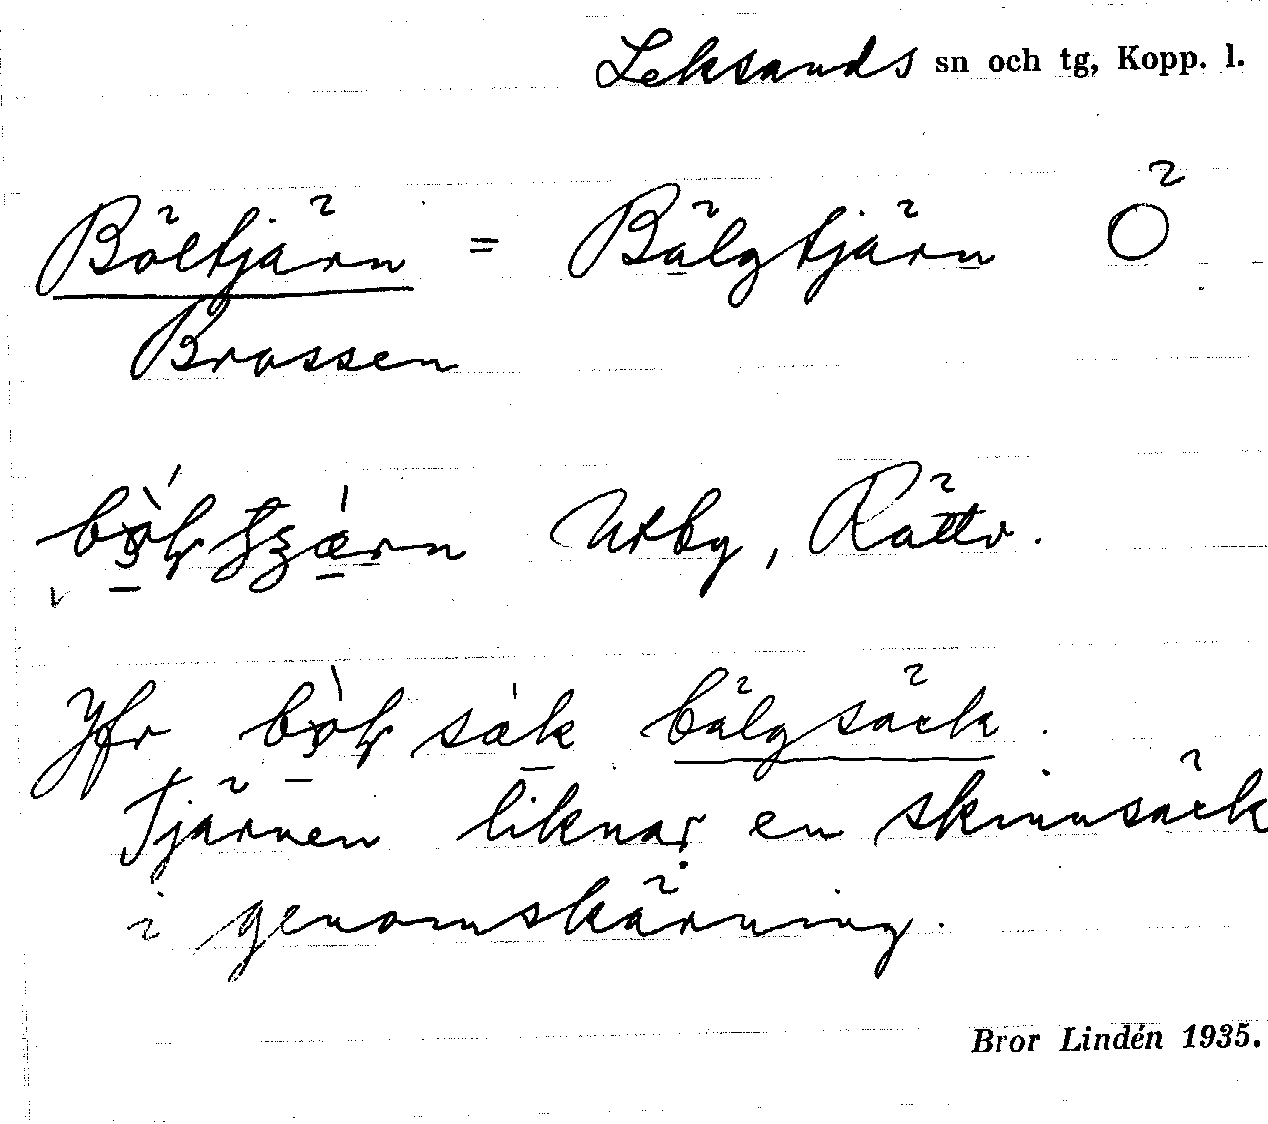 Leksands sn och tg, Kopp. l.
Böltjärn = Bälgtjärn Ö
Brossen
Utby, Rättv.
Jfr bälgsäck.
Tjärnen liknar en skinnsäck
i genomskärning.
Bror Lindén 1935.